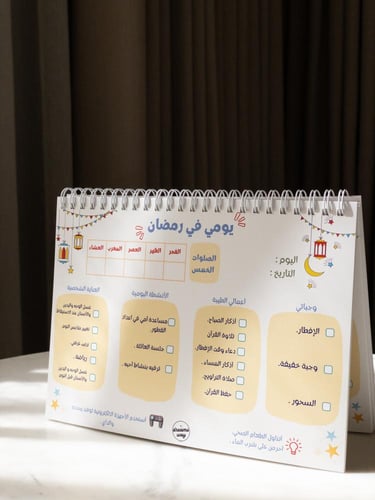 يومي في رمضان
اليوم :
التاريخ :
الصلوات
الخمس
الفجر الظهر العصر المغرب العشاء
وجباتي
الإفطار.
وجبة خفيفة.
السحور .
أعمالي الطيبة
أذكار الصباح .
تلاوة القرآن .
دعاء وقت الإفطار .
أذكار المساء .
صلاة التراويح .
حفظ القرآن .
الأنشطة اليومية
مساعدة أمي في اعداد
الفطور
جلسة العائلة .
ترفيه بنشاط أحبه .
العناية الشخصية
غسل الوجه واليدين
والأسنان عند الاستيقاظ
تغيير ملابس النوم
ترتيب غرفتي
رياضة .
غسل الوجه واليدين
والأسنان قبل النوم
أتناول الطعام الصحي
احرص على شرب الماء .
استخدم الأجهزة الالكترونية لوقت محدد